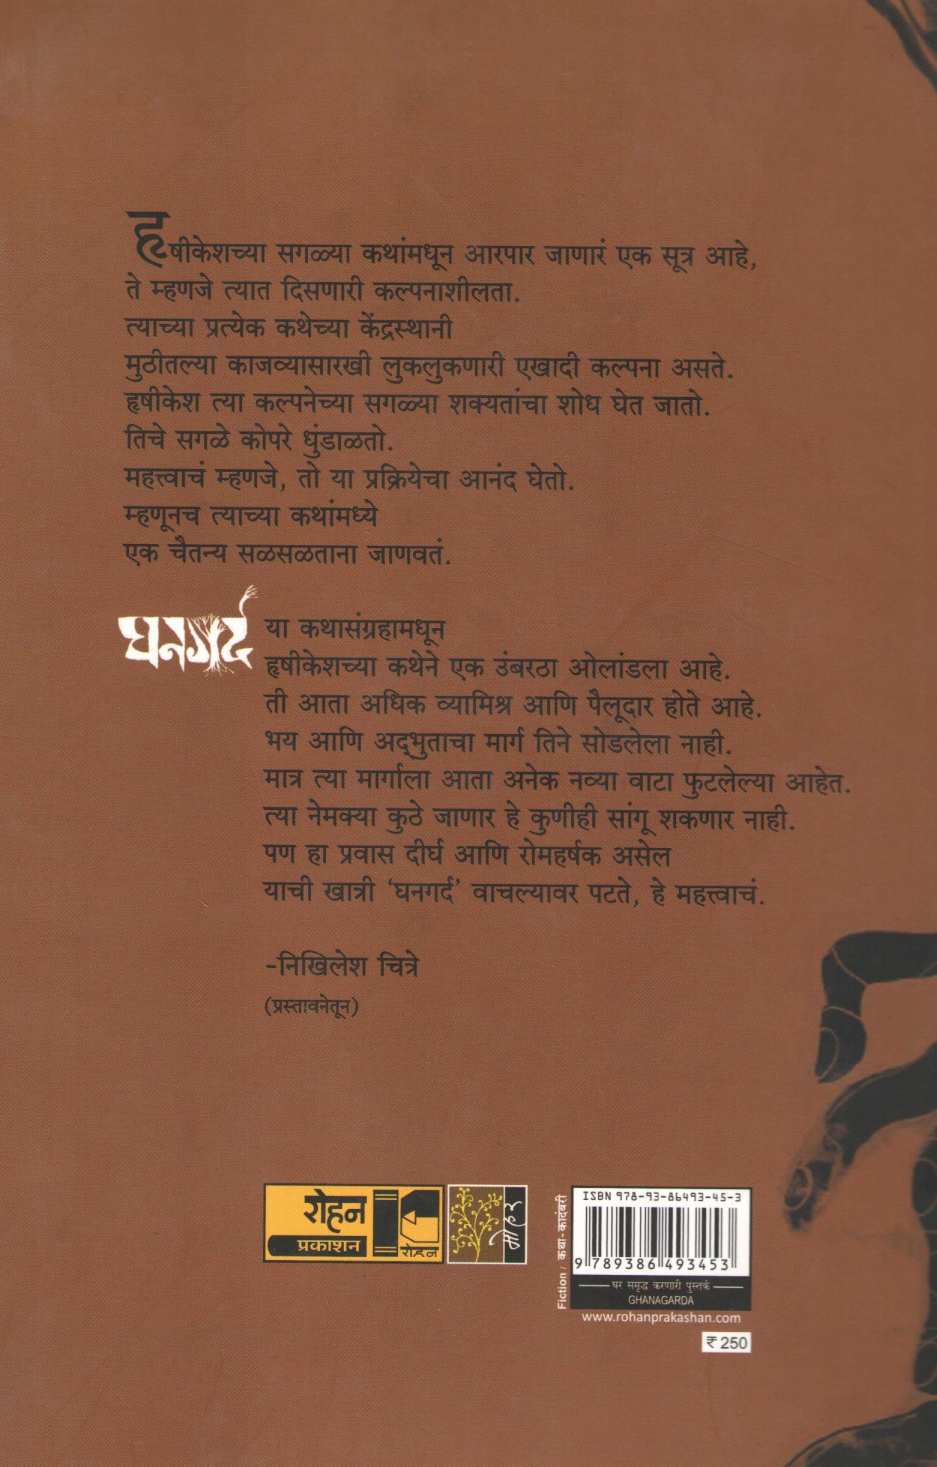 हृषीकेशच्या सगळ्या कथांमधून आरपार जाणारं एक सूत्र आहे,
ते म्हणजे त्यात दिसणारी कल्पनाशीलता.
त्याच्या प्रत्येक कथेच्या केंद्रस्थानी
मुठीतल्या काजव्यासारखी लुकलुकणारी एखादी कल्पना असते.
हृषीकेश त्या कल्पनेच्या सगळ्या शक्यतांचा शोध घेत जातो.
तिचे सगळे कोपरे धुंडाळतो.
महत्त्वाचं म्हणजे, तो या प्रक्रियेचा आनंद घेतो.
म्हणूनच त्याच्या कथांमध्ये
एक चैतन्य सळसळताना जाणवतं.
घनगर्द या कथासंग्रहामधून
हृषीकेशच्या कथेने एक उंबरठा ओलांडला आहे.
ती आता अधिक व्यामिश्र आणि पैलूदार होते आहे.
भय आणि अद्‌भुताचा मार्ग तिने सोडलेला नाही.
मात्र त्या मार्गाला आता अनेक नव्या वाटा फुटलेल्या आहेत.
त्या नेमक्या कुठे जाणार हे कुणीही सांगू शकणार नाही.
पण हा प्रवास दीर्घ आणि रोमहर्षक असेल
याची खात्री ‘घनगर्द’ वाचल्यावर पटते, हे महत्त्वाचं.
-निखिलेश चित्रे
(प्रस्तावनेतून)
रोहन
प्रकाशन
रोहन
मोहर
Fiction / कथा-कादंबरी
ISBN 978-93-86493-45-3
9 789386 493453
घर समृद्ध करणारी पुस्तकं
GHANAGARDA
www.rohanprakashan.com
₹ 250